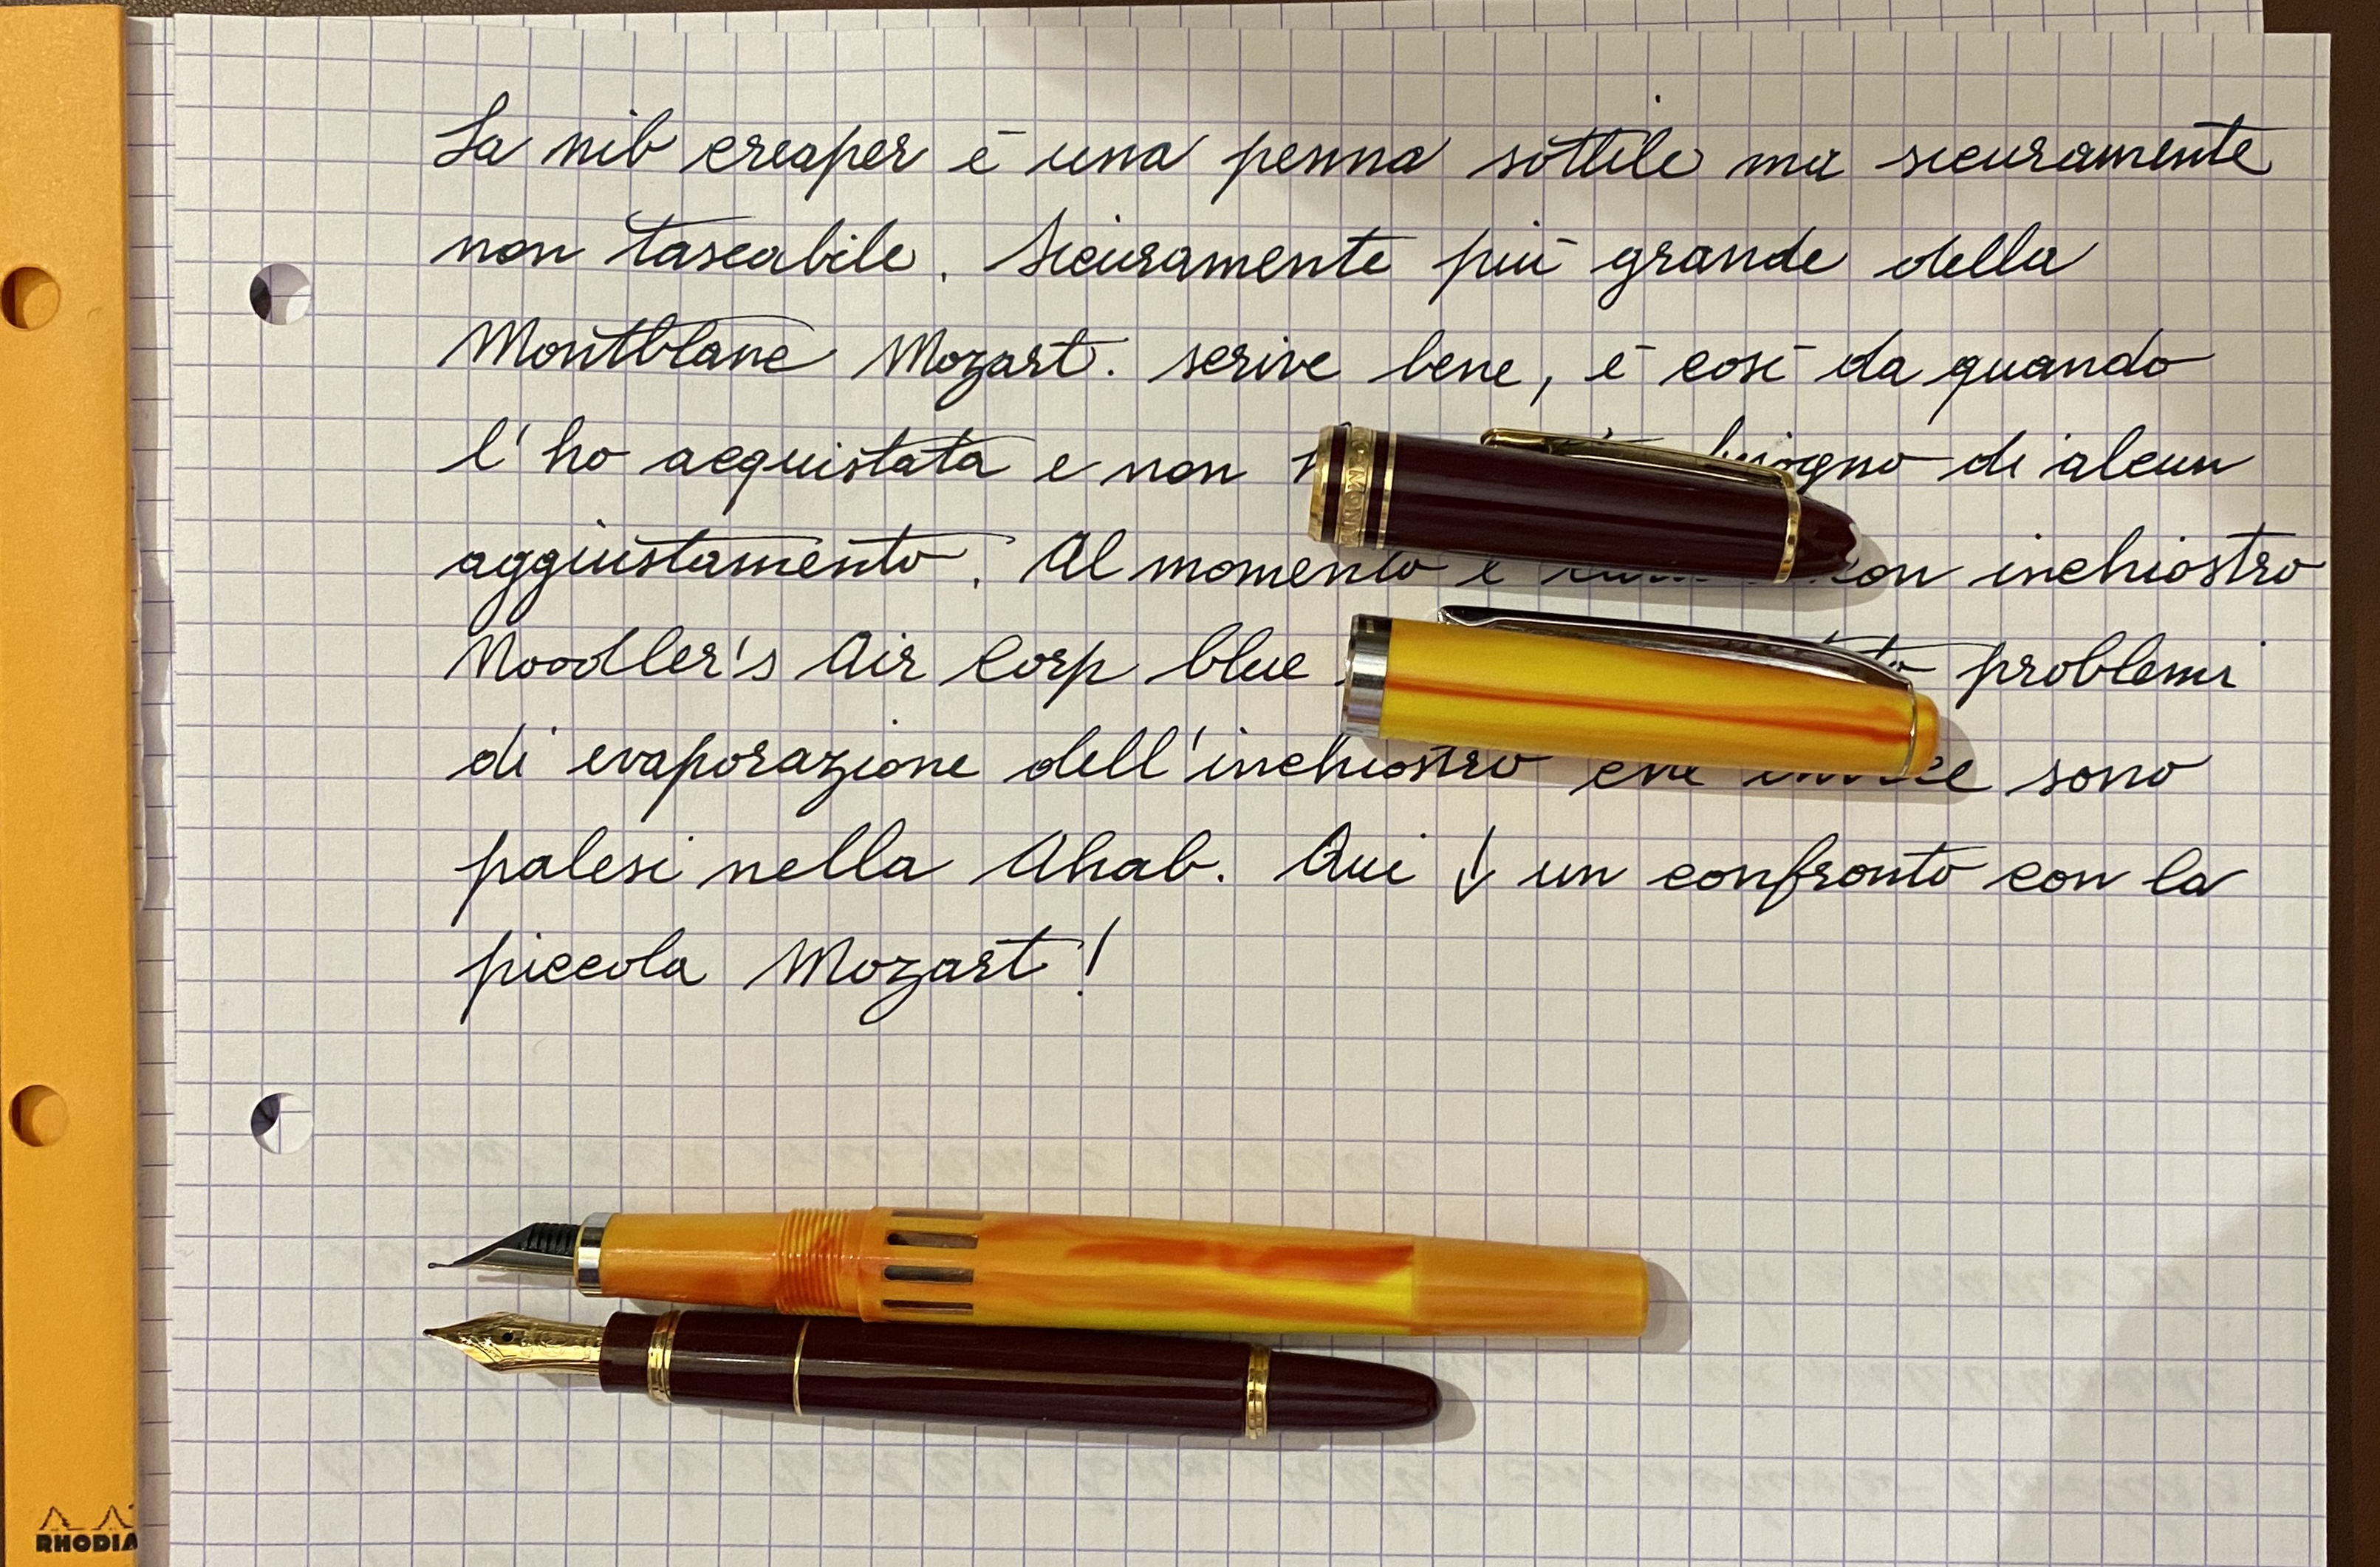 La nib creaper è una penna sottile ma sicuramente
non tascabile. Sicuramente più grande della
Montblanc Mozart. scrive bene, è così da quando
l'ho acquistata e non bisogno di alcun
aggiustamento. Al momento è con inchiostro
Noodler's Air Corp blue problemi
di evaporazione dell'inchiostro che invece sono
palesi nella Ahab. Qui ↓ un confronto con la
piccola Mozart!
RHODIA